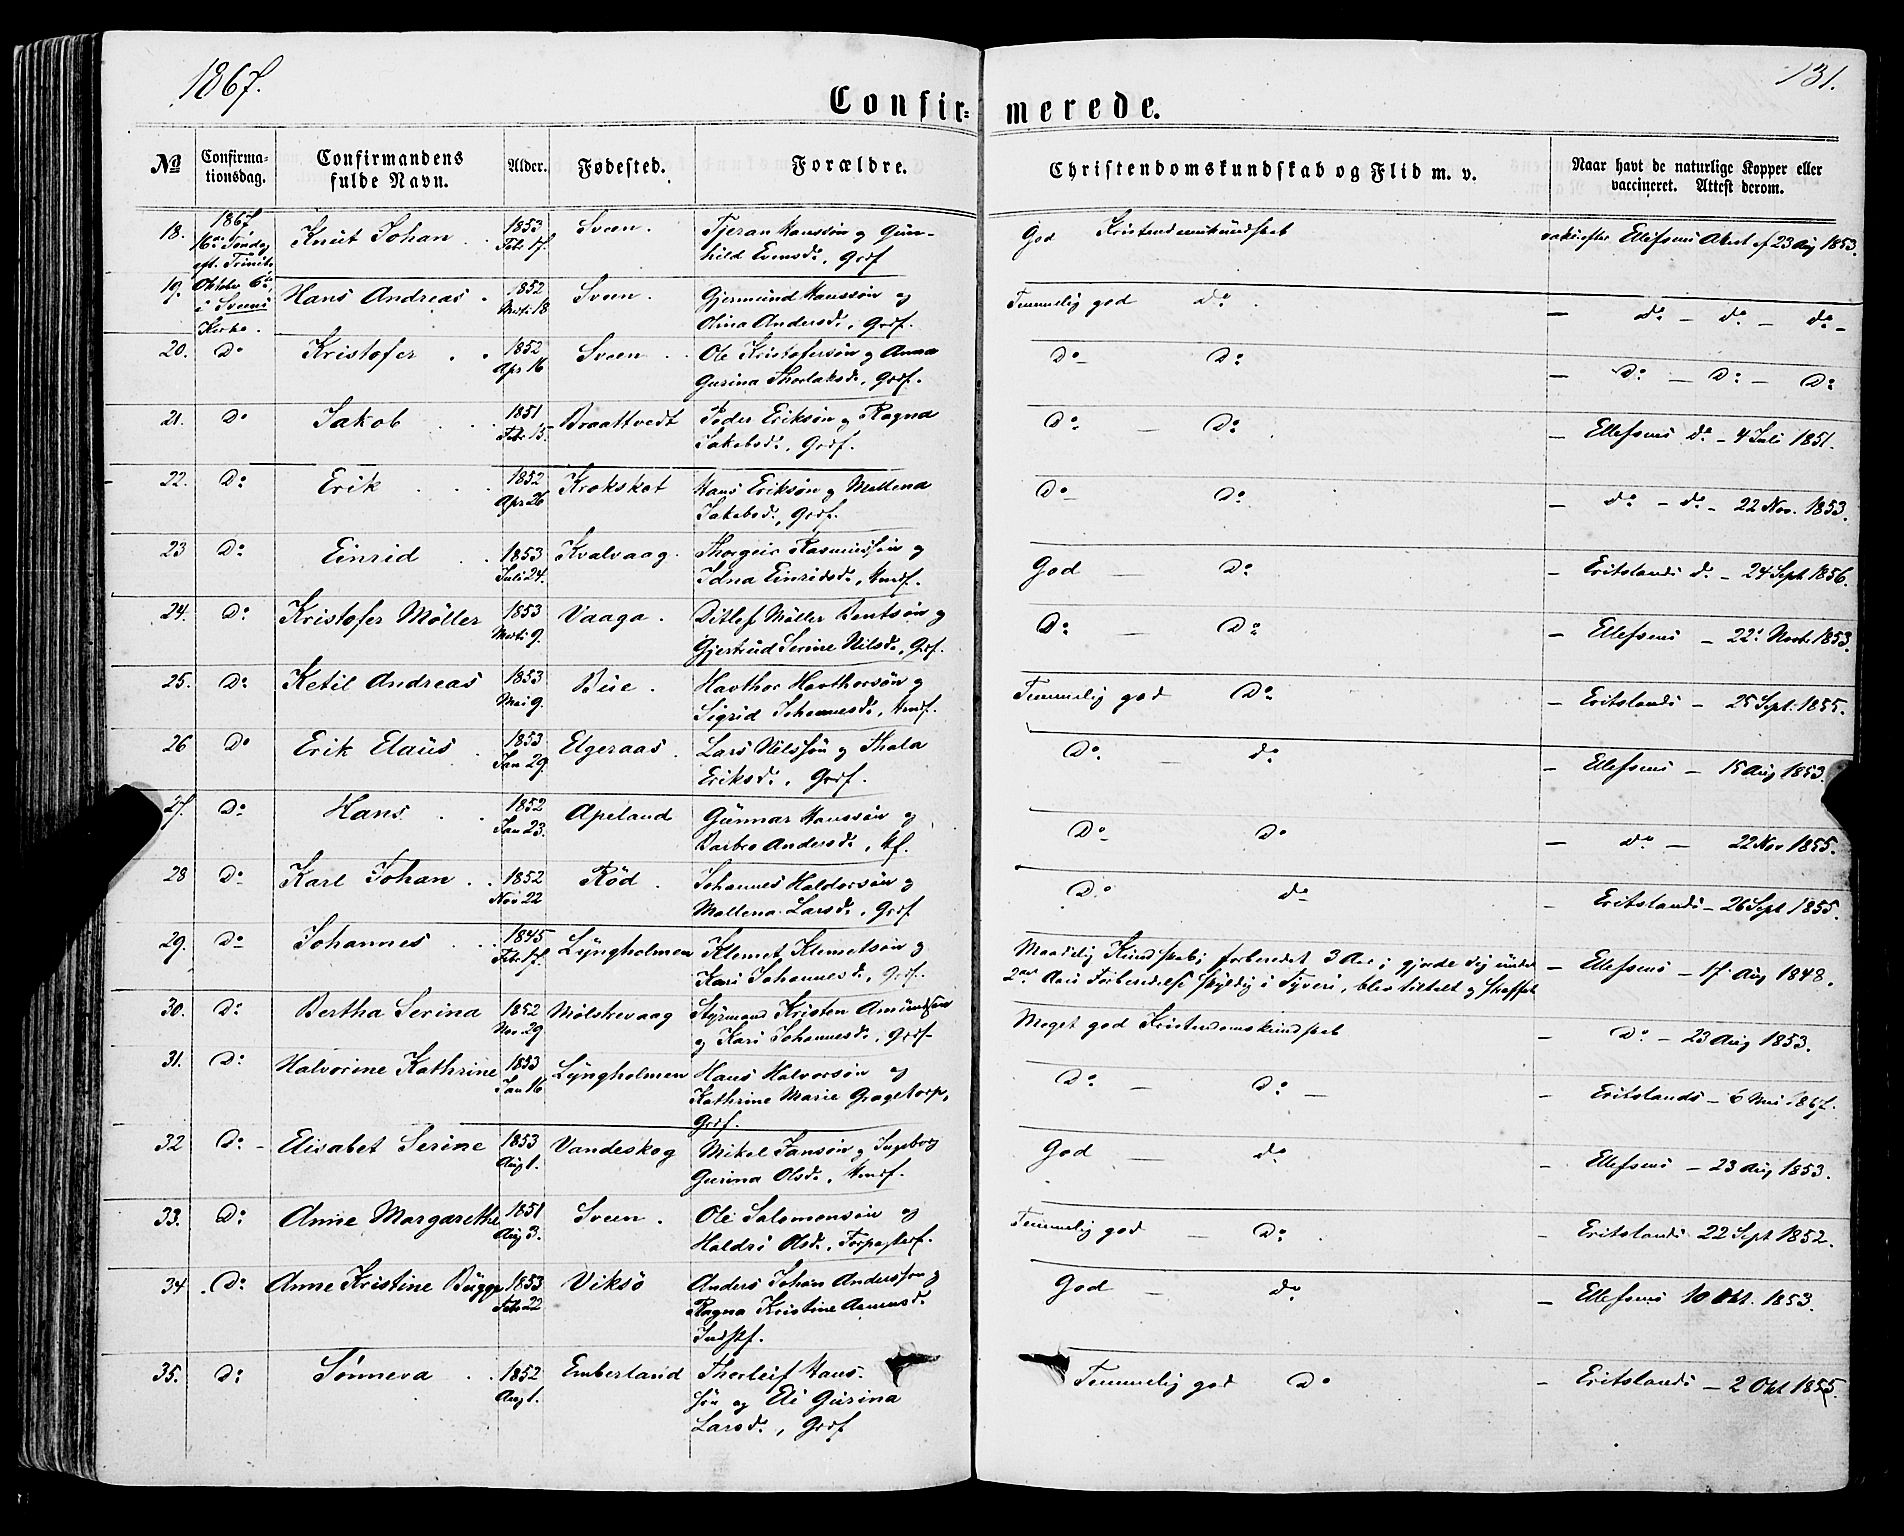 1867.
131.
Confir= merede.
No Confirma-tionsdag. Confirmandens fulde Navn. Alder. Fødested. Forældre. Christendomskundskab og Flid m. v. Naar havt de naturlige Kopper eller vaccineret. Attest derom.
18. 1867 Knut Johan 1853 Feb. 17. Sveen. Tjeran Hanssön og Gun-
hild Evensd., Grdf God Kristendomskundskab Ellefsens Atest af 23 Aug 1853.
16de Söndag eft. Trinit.
19. Oktober 6te, i Sveens Kirke. Hans Andreas 1852 18 Sveen. Gjermund Hanssön og
Olina Andersd., Grdf. Temmelig god do. — do — do — do —
20. Do Kristofer 1852 Apr 16 Sveen Ole Kristofersön og Anna
Gurina Thorlaksd., Grdf. Do Do — Do — Do — Do
21. Do Jakob 1851 Feb. 15. Braattvedt Peder Eriksön og Ragna
Jakobsd., Grdf. Do — Do — Ellefsens do — 4 Juli 1851.
22. Do Erik 1852 Apr 26 Krokskot Hans Eriksön og Mallena
Jakobsd., Grdf. Do Do — do — do — 22 Nov. 1853.
23 Do Einrid 1853 Juli 24. Kvalvaag. Thorgeir Rasmussön og
Edna Einridsd., Hmdf. God — Do — Eritslands do — 24 Sept 1856.
24. Do Kristofer Möller 1853 9. Vaaga. Ditlef Möller Bentsön og
Gjertrud Serine Nilsd., Grdf. Do — Do — Ellefsens — 22 1853.
25. Do Ketil Andreas 1853 Mai 9. Bue. Havthor Havthorsön og
Sigrid Johannesd., Hmdf. Temmelig god Do — Eritslands — 25 Sept. 1855.
26 Do Erik Elaus 1853 Jan 29. Elgeraas. Lars Nilssön og Thala
Eriksd., Grdf. Do — do — Ellefsens — 15 Aug 1853.
27. Do Hans 1852 Jan 23. Apeland Gunnar Hanssön og
Barbro Andersd., Do Do — do — 22 Nov 1855.
28 Do Karl Johan 1852 Nov 22 Röd. Johannes Haldorsön og
Mallena Larsd., Grdf Do do — Eritslands — 26 Sept 1855.
29. Do Johannes 1845 Feb. 17. Lyngholmen Klemet Klemetsön og
Kari Johannesd., Grdf. Maadelig Kundskab; forberedet 3 Aar; gjorde sig under
2det Aars Forberedelse skyldig i Tyveri, blev tiltalt og straffet — Ellefsens — 17. Aug 1848.
30. Do Bertha Serina 1852 Nov. 29. Mölstrevaag Styrmand Kristen Amundsen
og Kari Johannesd., Grdf. Meget god Kristendomskundskab — Do — 23 Aug 1853.
31. Do Halvorine Kathrine 1853 Jan 16 Lyngholmen Hans Halvorsön og
Kathrine Marie Gagetorp,
Grdf. Do — Do — — Eritslands — 6 Mai 1867.
32 Do Elisabet Serine 1853 Aug 1. Vandeskog Mikel Jansön og Ingeborg
Gurina Olsd., Hmdf. God — do — Ellefsens — 23 Aug 1853.
33. Do Anne Margarethe 1851 Aug 3. Sveen. Ole Salomonsön og
Haldri Olsd., Temmelig god — Do — Eritslands 22 Sept 1852.
34. Do Anne Kristine Bugge 1853 Feb. 22 Viksö Anders Johan Anderssen og
Ragna Kristine
Indstf. God do — Ellefsens 10 Okt. 1853.
35. Do Sönneva 1852 Aug 1. Emberland Thorleif Hans-
sön og Eli Gurina
Larsd., Grdf Temmelig god Do — Eritslands — 2 Okt 1855.